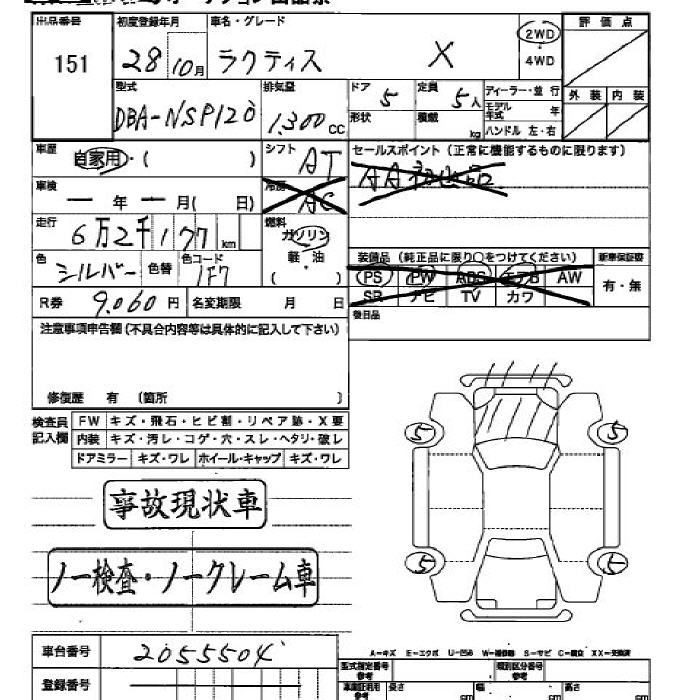 出品番号 初度登録年月 車名・グレード 評価点
151 28 10月 ラクティス X 2WD
4WD
型式 排気量 ドア 定員 ディーラー・並行 外装 内装
DBA-NSP120 1,300cc 5 5人 モデル年式 年
形状 積載 kg ハンドル 左・右
車歴 自家用・( ) シフト AT セールスポイント (正常に機能するものに限ります)
車検 ー年ー月( 日) 冷房 AC
走行 6万2千177km 燃料 ガソリン
軽・油
( )
色 シルバー 色替 色コード 1F7
装備品 (純正品に限り○をつけてください) 新車保証書
PS PW ABS エアB AW 有・無
SR ナビ TV カワ
R券 9,060円 名変期限 月 日 後日品
注意事項申告欄(不具合内容等は具体的に記入して下さい)
修復歴 有 〔箇所 〕
検査員記入欄 FW キズ・飛石・ヒビ割・リペア跡・X要
内装 キズ・汚レ・コゲ・穴・スレ・ヘタリ・破レ
ドアミラー キズ・ワレ ホイール・キャップ キズ・ワレ
5 5
5 5
事故現状車
ノー検査・ノークレーム車
A=キズ E=エクボ U=凹み W=補修跡 S=サビ C=腐食 XX=交換済
車台番号 2055504
登録番号
型式指定番号 参考 類別区分番号 参考
長さ cm 幅 cm 高さ cm